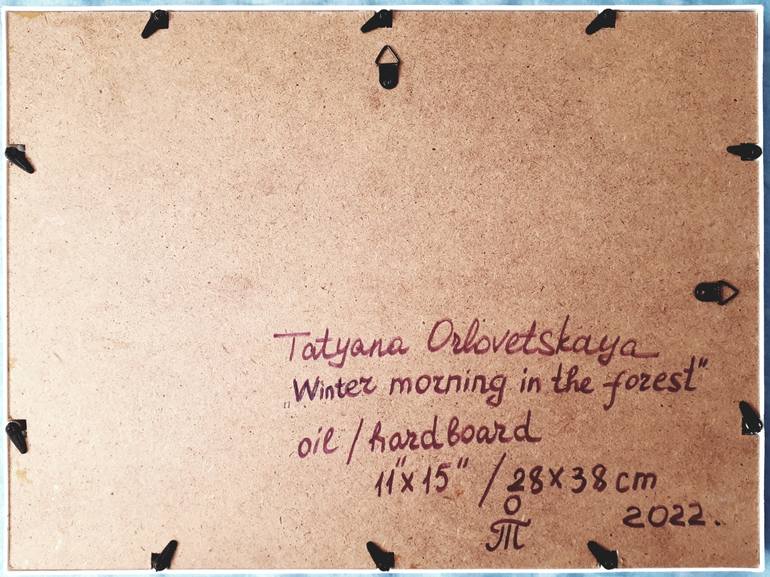 Tatyana Orlovetskaya
„Winter morning in the forest"
oil / hardboard
11"x15" / 28x38 cm
2022.